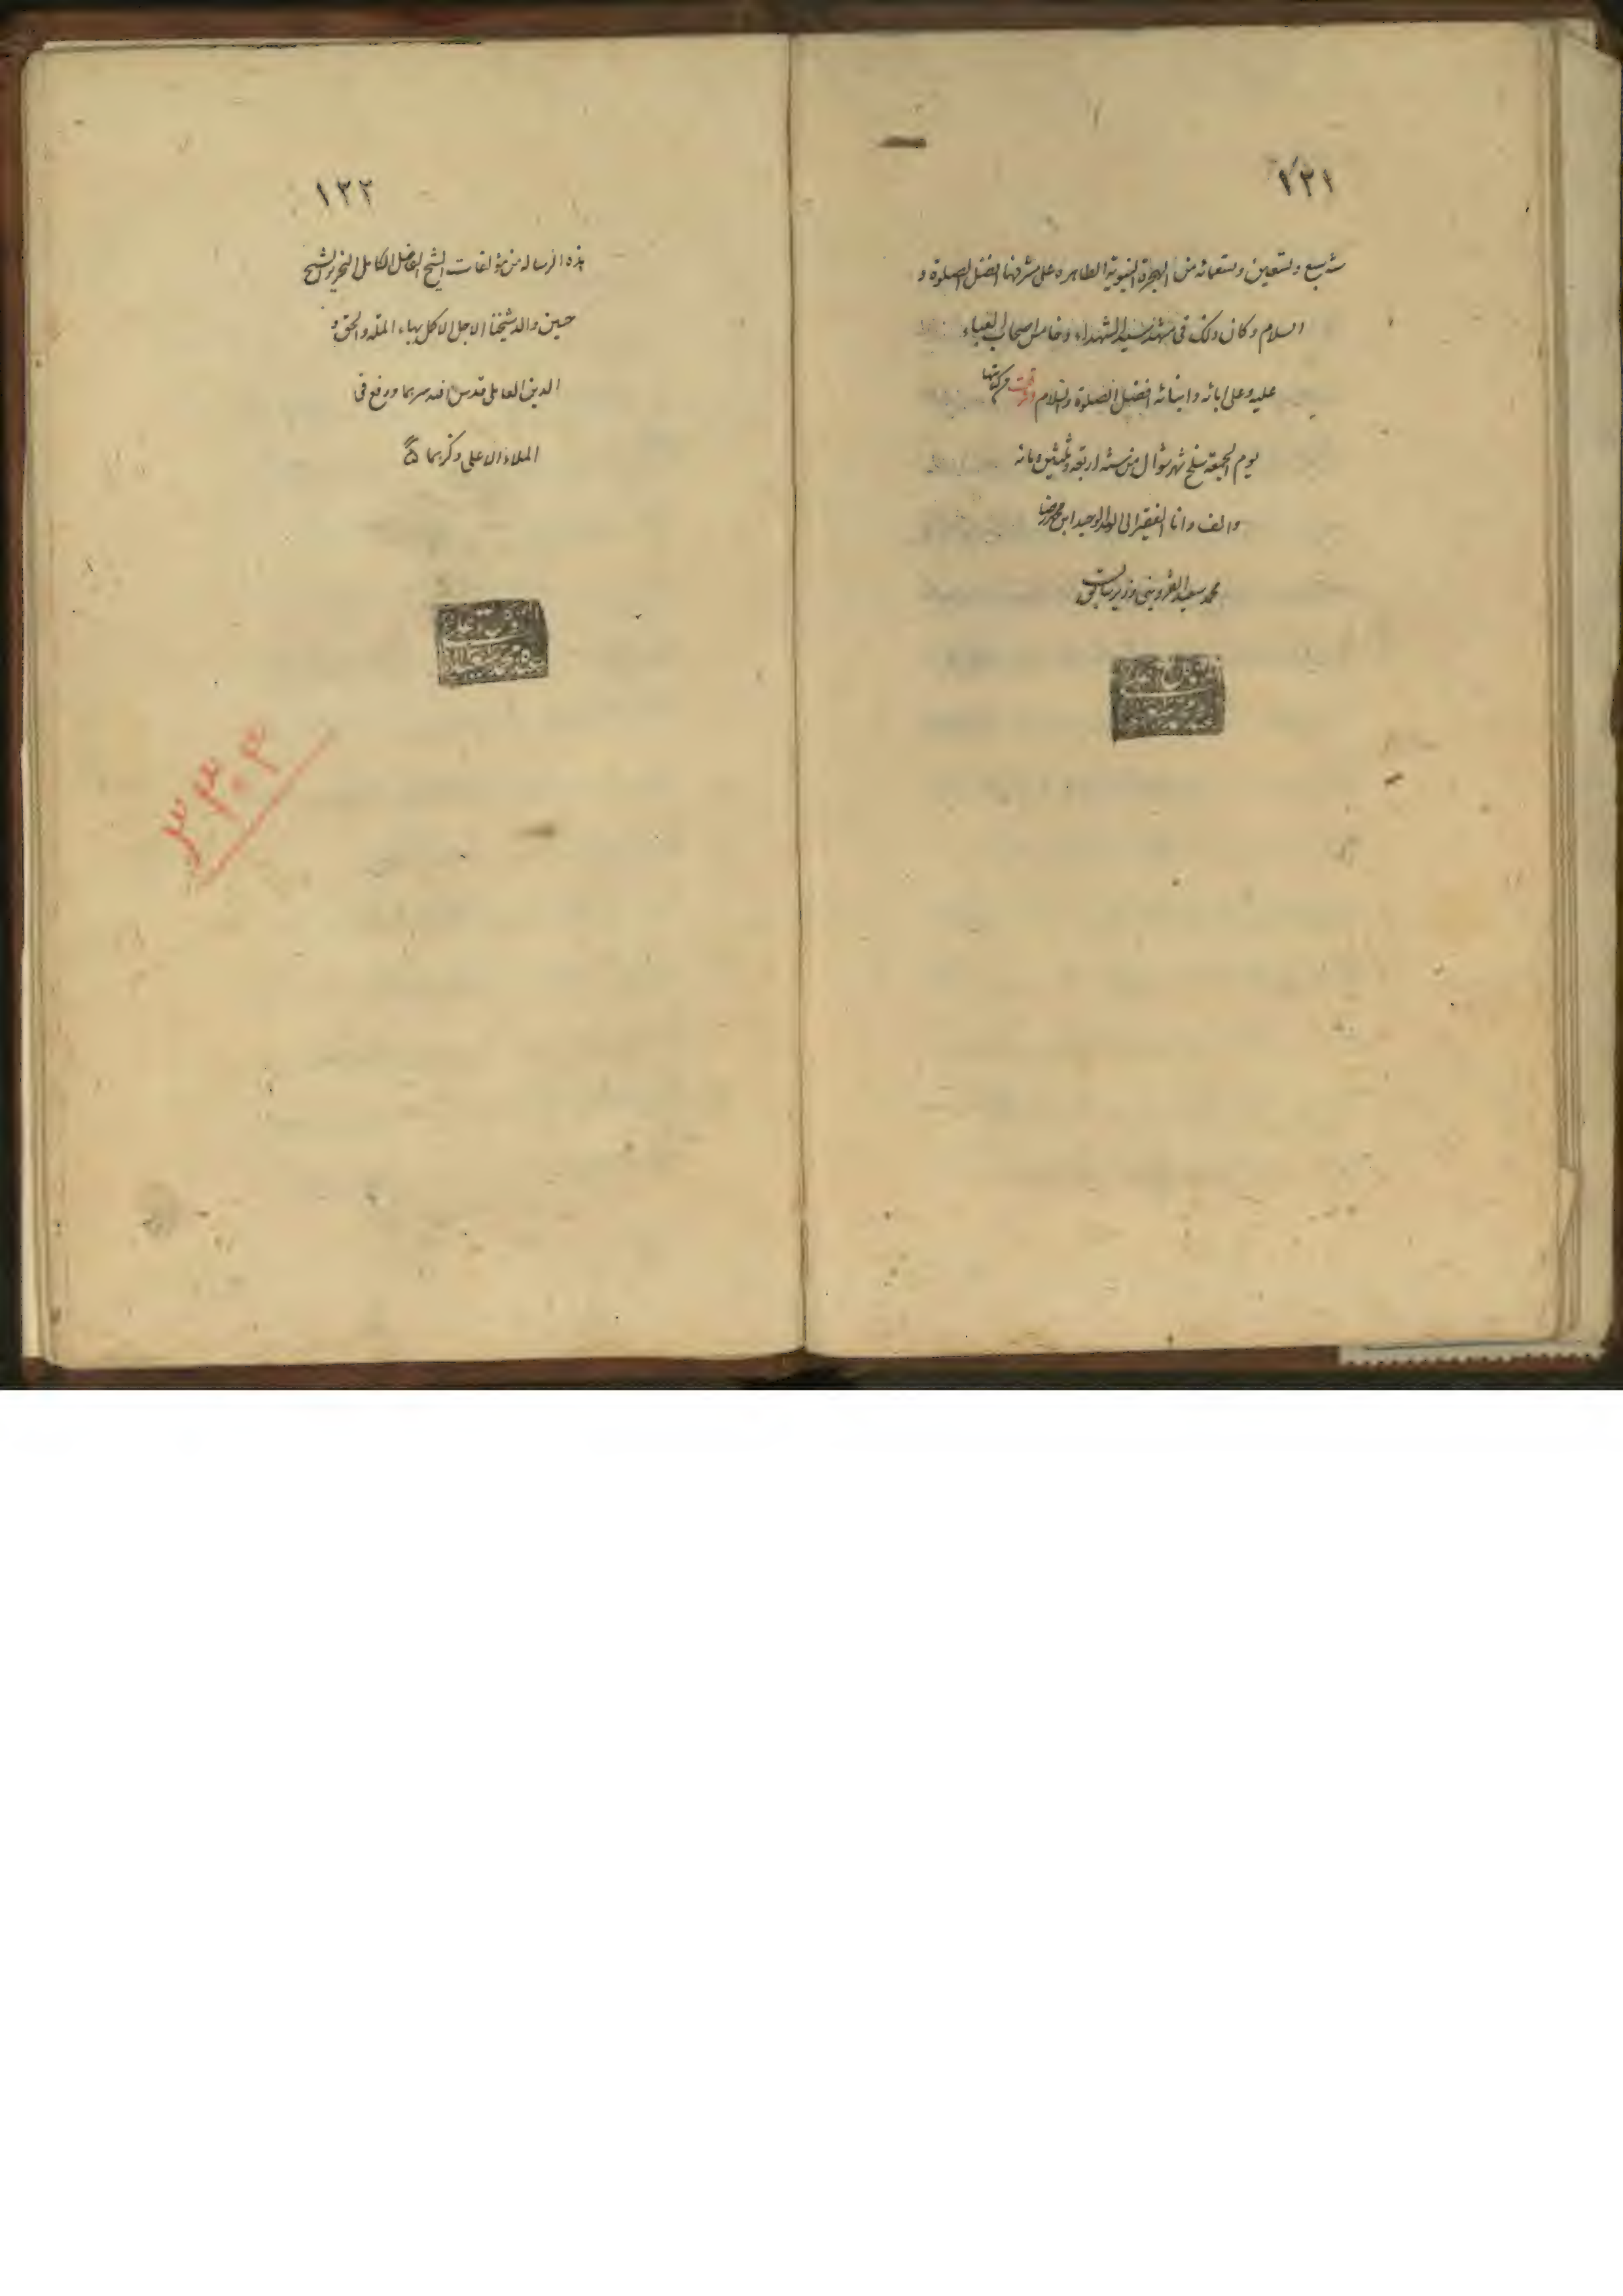 ١٢١
سنه سبع وتسعين وتسعمائه من الهجرة النبوية الطاهره على مشرفها افضل الصلوة و
السلام وكان ذلك فى مشهد سيد الشهداء وخامس اصحاب العباء
عليه وعلى ابائه وابنائه افضل الصلوة والسلام وفرغت من كتابتها
يوم الجمعة سلخ شهر شوال من سنه اربعه وثلثين ومائه
والف وانا الفقير الى الوحيد ابن محمد رضا
محمد سعيد القزوينى وزير سابق
١٢٢
هذه الرساله من مؤلفات الشيخ الفاضل الكامل النحرير الشيخ
حسين والد شيخنا الاجل الاكمل بهاء المله والحق و
الدين العاملى قدس الله سرهما ورفع فى
الملاء الاعلى ذكرهما
٣٣٠٣